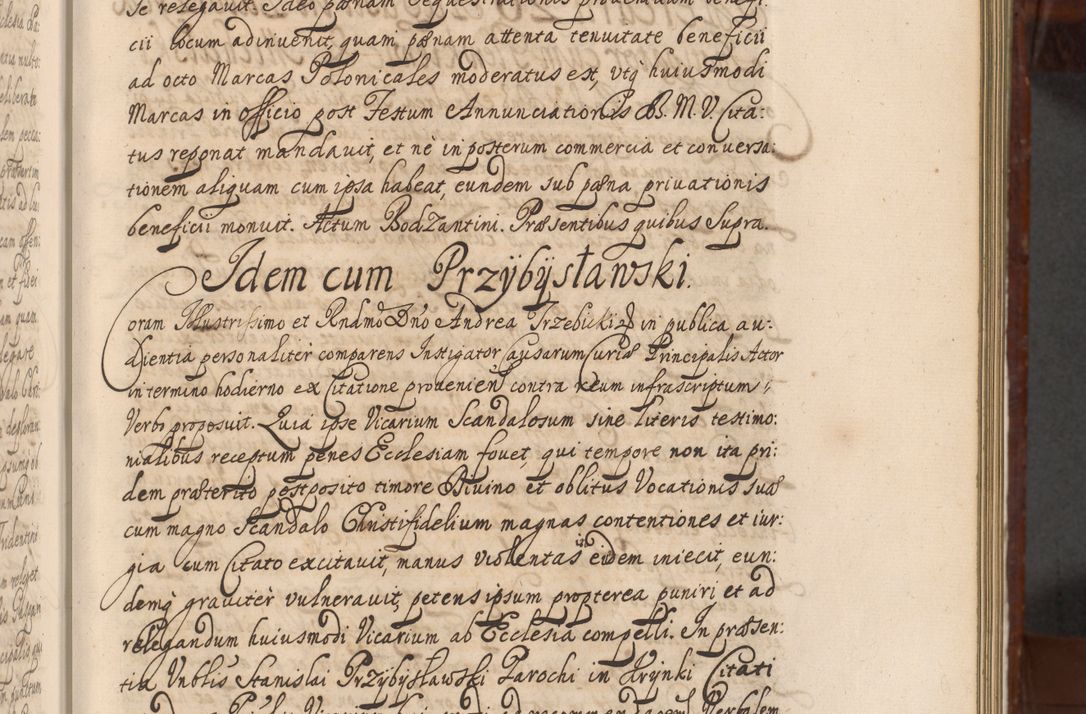 se relegavit. Ideo pænam sequestrationis proventuum benefi:
cii locum adinvenit, quam pænam attenta tenuitate beneficii
ad octo Marcas Polonicales moderatus est, utq huiusmodi
Marcas in officio post Festum Annunciationis B. M. V. Cita:
tus reponat mandavit, et nè in posterum commercia et conversa:
tionem aliquam cum ipsa habeat, eundem sub pæna privationis
beneficii monuit. Actum Bodzantini. Præsentibus quibus Supra.
Idem cum Przÿbÿsławski.
Coram Illustrissimo et Rndmo Dno Andrea Trzebicki in publica au:
dientia personaliter comparens Instigator Causarum Curiæ Principalis Actor
in termino hodierno ex Citatione provenien contra Reum infrascriptum
Verbo proposuit. Quia ipse Vicarium Scandalosum sine literis testimo:
nialibus receptum penes Ecclesiam fovet, qui tempore non ita pri:
dem præterito postposito timore Divino et oblitus Vocationis suæ
cum magno Scandalo Christifidelium magnas contentiones et iur:
gia cum Citato excitavit, manus violentas eidem iniecit, eun:
demq graviter vulneravit, petens ipsum propterea puniri et ad
relegandum huiusmodi Vicarium ab Ecclesia compelli. In præsen:
tia Vnblis Stanislai Przÿbÿsławski Parochi in Krÿnki Citati